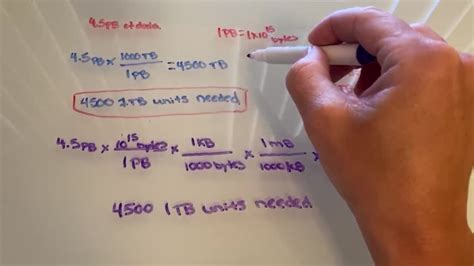 4.5PB of data.
1PB = 1x10^15 bytes
4.5PB x 1000TB / 1PB = 4500 TB
4500 1TB units needed
4.5PB x 10^15 bytes / 1PB x 1KB / 1000 bytes x 1mB / 1000KB x
4500 1TB units needed